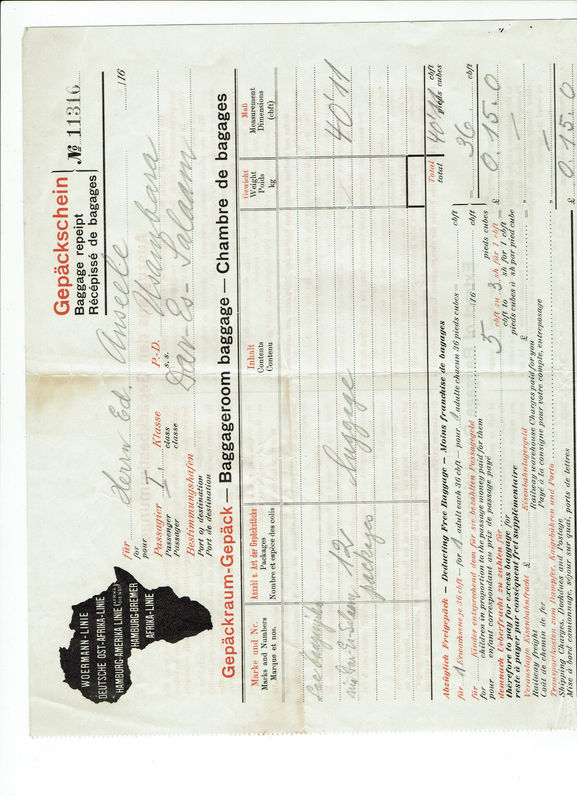 WOERMANN-LINIE
DEUTSCHE OST-AFRIKA-LINIE
HAMBURG-AMERIKA LINIE
HAMBURG-BREMER
AFRIKA-LINIE
Gepäckschein
Baggage repeipt
Récépissé de bagages
№ 11316
/16
für
for
pour
Herrn Ed. Anseele
Passagier I. Klasse
Passenger class
Passager classe
P.-D.
s. s.
Usambara
Bestimmungshafen
Port of destination
Port de destination
Dar-Es-Salaam
Gepäckraum-Gepäck — Baggageroom baggage — Chambre de bagages
Marke und Nr.
Marks and Numbers
Marque et nos.
Anzahl u. Art der Gepäckstücke
Packages
Nombre et espèce des colis
Inhalt
Contents
Contenu
Gewicht
Weight
Poids
kg
Maß
Measurement
Dimensions
(cbft)
12 luggage 40'11
packages
Total
total
40'11 cbft
pieds cubes
Abzüglich Freigepäck — Deducting Free Baggage — Moins franchise de bagages
für 1 Erwachsene je 36 cbft — for 1 adult each 36 cbft — pour 1 adulte chacun 36 pieds cubes = cbft
= 36 cbft
für Kinder entsprechend dem für sie bezahlten Passagegeld /16 =
for children in proportion to the passage money paid for them
pour enfant correspondant au prix de passage payé pieds cubes
demnach Ueberfracht zu zahlen für 5 cbft zu 3 sh für 1 cbft = £ 0.15.0
therefore to pay for excess baggage, for cbft to sh for 1 cbft
reste à payer par conséquent frei supplémentaire pieds cubes à sh par pied cube
Verauslagte Eisenbahnfracht £ Eisenbahnlagergeld £
Railway freight Railway warehouse Charges paid for you
Coût de chemin de fer Payé à la consigne pour votre compte, entreposage
Transportkosten zum Dampfer, Kaigebühren und Porto
Shipping Charges, Dockdues and Postage
Mise à bord camionnage, séjour sur quai, ports de lettres
£ 0.15.0